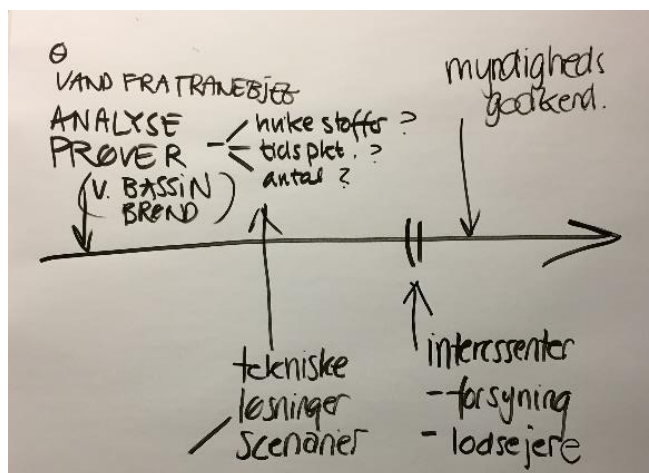 VAND FRA TRANEBJERG
ANALYSE
PRØVER
- hvilke stoffer ?
- tidspkt. ?
- antal ?
(V. BASSIN
BRØND)
myndigheds
godkend.
tekniske
løsninger
/ scenarier
interessenter
- forsyning
- lodsejere